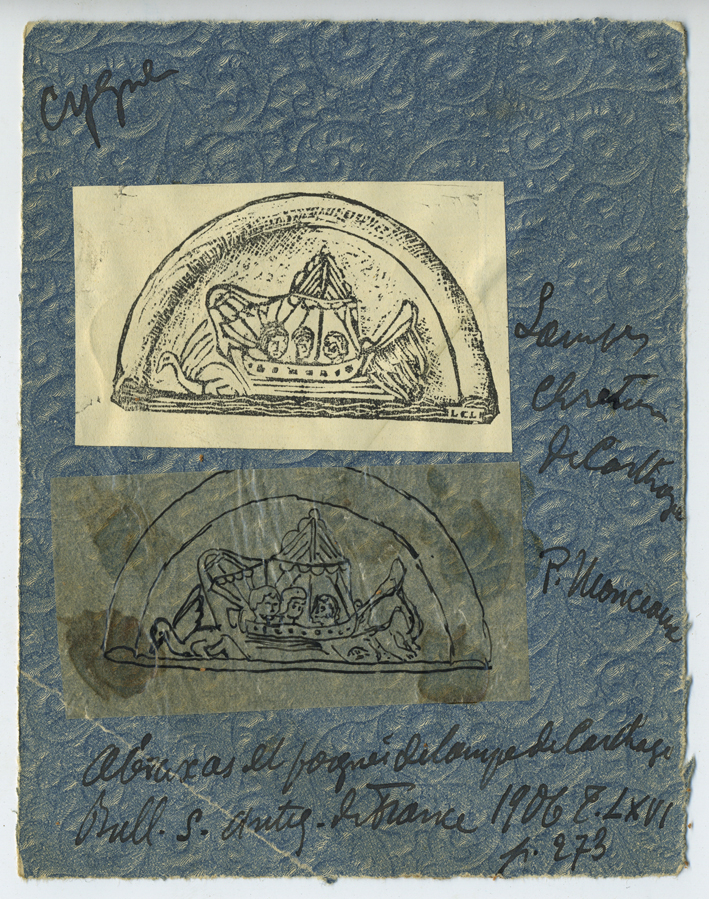 cygne
L.C.L.
Lampes
Chretien
de Carthage
P. Monceaux
Abraxas et de lampe de Carthage
Bull. S. Antiq. de France 1906 T. LXVI
p. 273